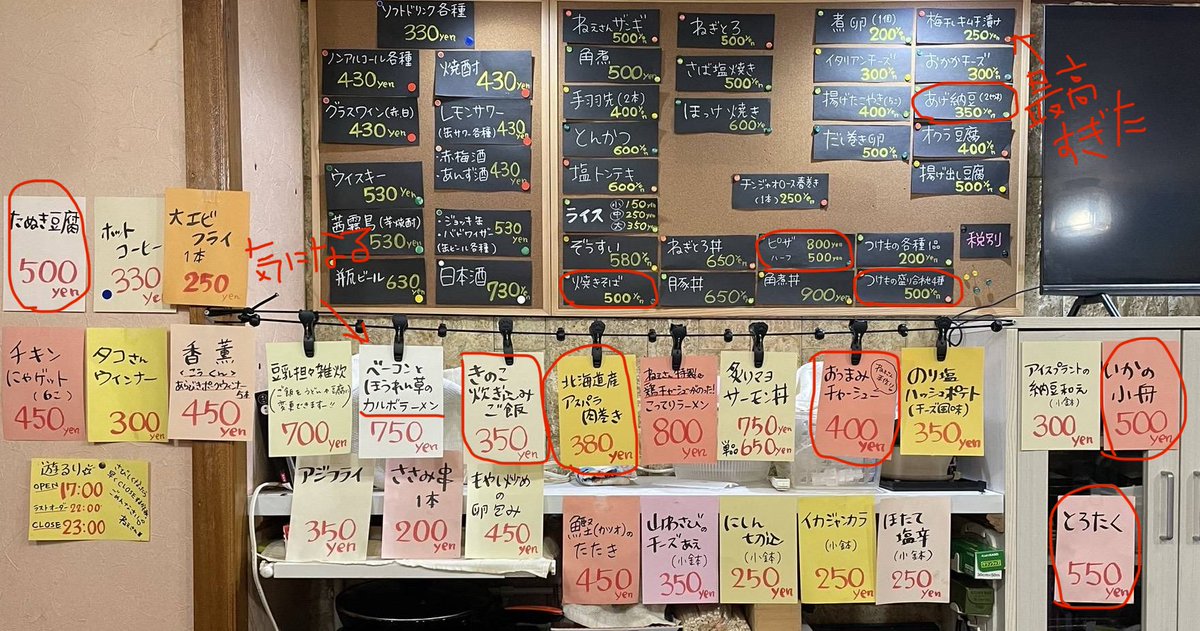 ソフトドリンク各種
330yen
ノンアルコール各種
430yen
焼酎
430yen
グラスワイン(赤,白)
430yen
レモンサワー
(缶サワー各種)
430yen
ウイスキー
530yen
・赤梅酒
・あんず酒
430yen
茜霧島(芋焼酎)
530yen
・ジョッキ缶
・バドワイザー
(缶ビール各種)
530yen
瓶ビール 630yen
日本酒
730yen
ねぇさんザンギ
500Yen
角煮
500yen
手羽先(2本)
400Yen
とんかつ
600Yen
塩トンテキ
600Yen
ライス
小 150yen
中 250yen
大 350yen
ぞうすい
580Yen
焼きそば
500Yen
ねぎとろ
500Yen
さば塩焼き
500Yen
ほっけ焼き
600Yen
チンジャオロース春巻き
(1本) 250Yen
ねぎとろ丼
650Yen
豚丼
650Yen
ピザ 800yen
ハーフ 500yen
角煮丼
900yen
つけもの各種1品
200Yen
つけもの盛り合わせ4種
500Yen
煮卵(1個)
200Yen
イタリアンチーズ
300Yen
揚げたこやき(5こ)
400Yen
だし巻き卵
500Yen
梅干しキムチ漬け
250Yen
おかかチーズ
300Yen
あげ納豆
350Yen
オクラ豆腐
400Yen
揚げ出し豆腐
500Yen
税別
最高
すぎた
気になる
たぬき豆腐
500
yen
ホット
コーヒー
330
yen
大エビ
フライ
1本
250
yen
チキン
にゃゲット
(6こ)
450
yen
タコさん
ウィンナー
300
yen
香薫
(こうくん)
あらびきポークウィンナー
5本
450
yen
遊るり☆
OPEN 17:00
ラストオーダー 22:00
CLOSE 23:00
豆乳担々雑炊
700
yen
ベーコンと
ほうれん草の
カルボラーメン
750
yen
きのこ
炊き込み
ご飯
350
yen
北海道産
アスパラ
肉巻き
380
yen
ねぇさん特製の
鶏チャーシューがのった!
こってりラーメン
800
yen
炙りマヨ
サーモン丼
750
yen
単品 650
yen
おつまみ
チャーシュー
400
yen
のり塩
ハッシュポテト
(チーズ風味)
350
yen
アイスプラントの
納豆和え
(小鉢)
300
yen
いかの
小舟
500
yen
アジフライ
350
yen
ささみ串
1本
200
yen
もやし炒めの
卵包み
450
yen
鰹(カツオ)の
たたき
450
yen
山わさびの
チーズあえ
(小鉢)
350
yen
にしん
切込
(小鉢)
250
yen
イカジャンカラ
(小鉢)
250
yen
ほたて
塩辛
(小鉢)
250
yen
とろたく
550
yen